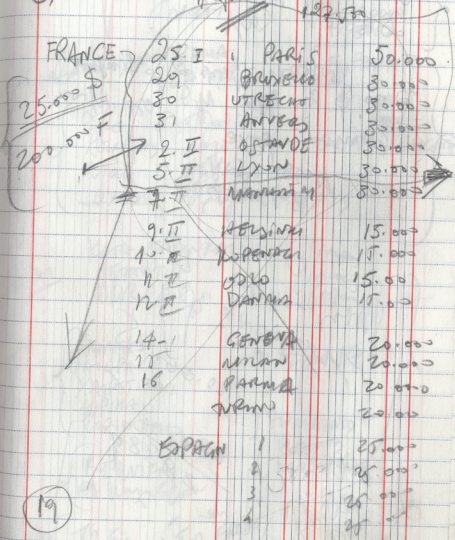 127.500
FRANCE 25 I PARIS 50.000
25.000 $ 29 BRUXELLES 30.000
30 UTRECHT 30.000
200.000 F 31 ANVERS 30.000
2. II OSTANDE 30.000
5. II LYON 30.000
7. II 30.000
9. II HELSINKI 15.000
10. II KOPENAG 15.000
11. II OSLO 15.00
12 II 15.00
14 GENEVA 20.000
15 MILAN 20.000
16 PARMA 20.000
TURINO 20.00
ESPAGN 1 25.000
2 25.000
3 25.000
4 25
19